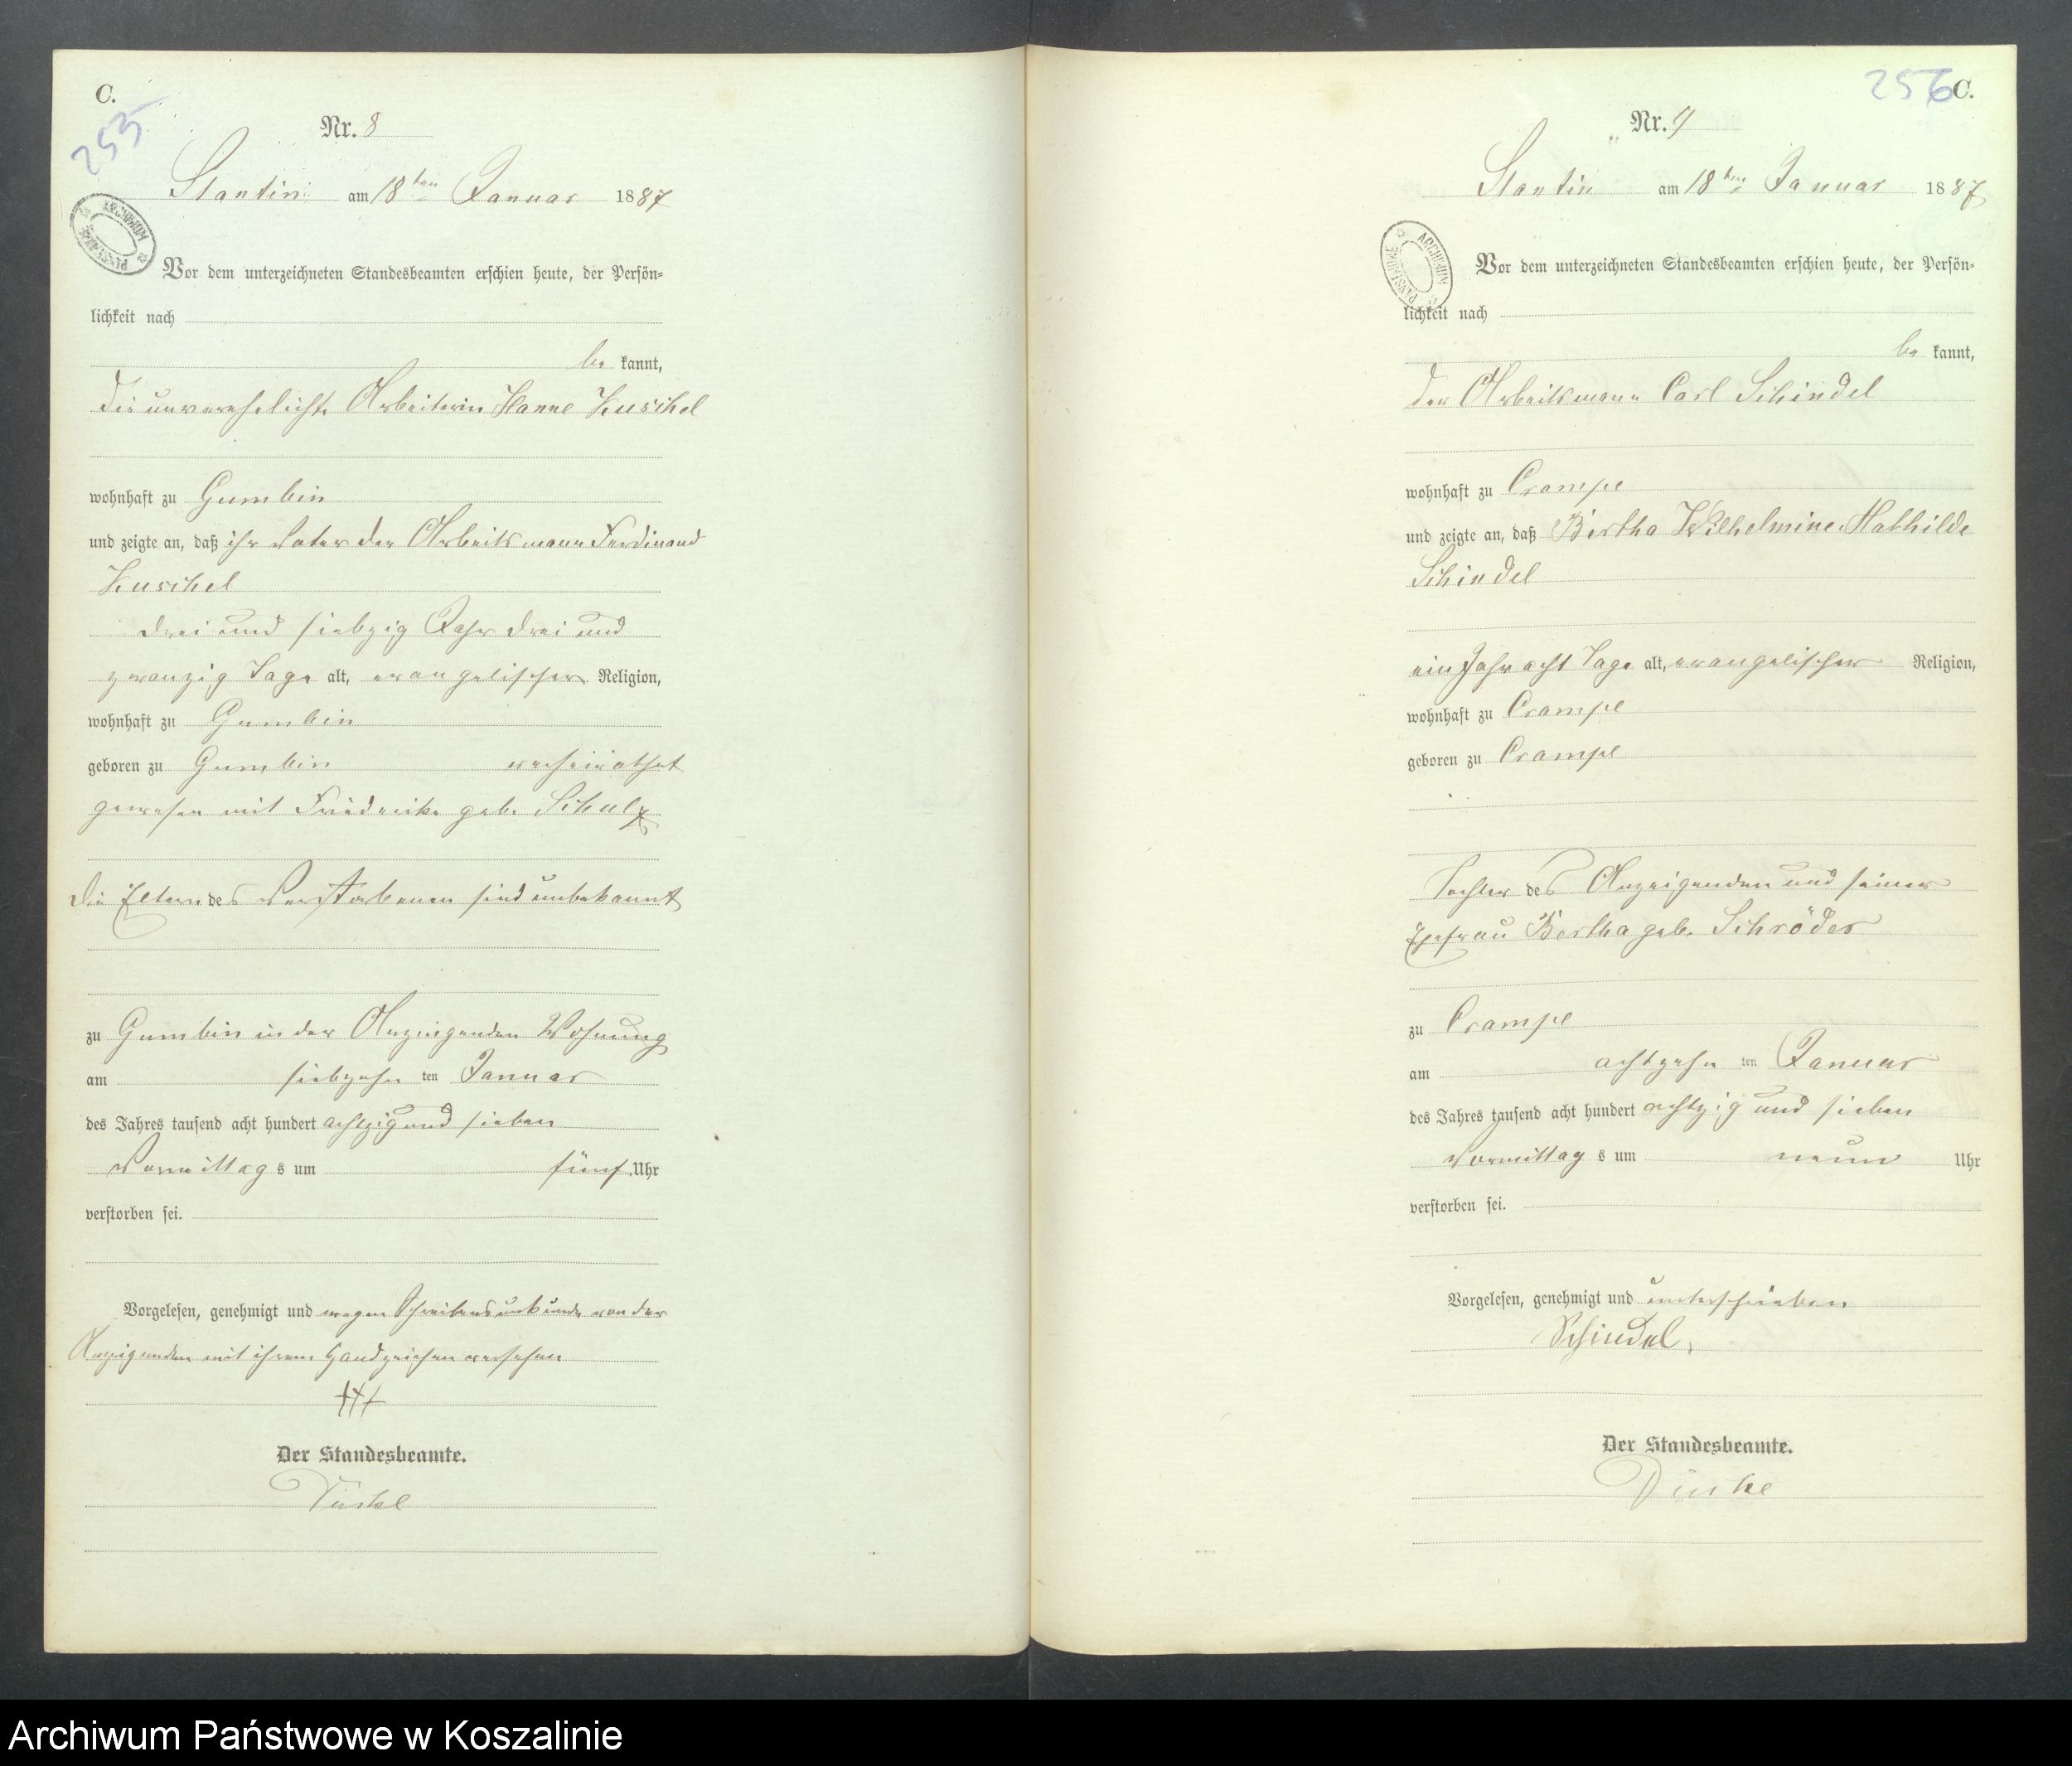 C.
255
Nr. 8
Stantin am 18ten Januar 1887
ARCHIWUM PAŃSTWOWE
Vor dem unterzeichneten Standesbeamten erschien heute, der Persön-
lichkeit nach
be kannt,
die unverehelichte Arbeiterin Hanne Kuschel
wohnhaft zu Gumbin
und zeigte an, daß ihr Vater der Arbeitsmann Ferdinand
Kuschel
drei und siebzig Jahr drei und
zwanzig Tage alt, evangelischer Religion,
wohnhaft zu Gumbin
geboren zu Gumbin verheirathet
gewesen mit Friederike geb. Schulz
Die Eltern des Verstorbenen sind unbekannt
zu Gumbin in der Anzeigenden Wohnung
am siebzehn ten Januar
des Jahres tausend acht hundert achtzig und sieben
Vormittag s um fünf Uhr
verstorben sei.
Vorgelesen, genehmigt und wegen Schreibensunkunde von der
Anzeigenden mit ihrem Handzeichen versehen
+++
Der Standesbeamte.
256
C.
Nr. 9
Stantin am 18ten Januar 1887
ARCHIWUM PAŃSTWOWE
Vor dem unterzeichneten Standesbeamten erschien heute, der Persön-
lichkeit nach
be kannt,
der Arbeitsmann Carl Schindel
wohnhaft zu Crampe
und zeigte an, daß Bertha Wilhelmine Mathilde
Schindel
ein Jahr acht Tage alt, evangelischer Religion,
wohnhaft zu Crampe
geboren zu Crampe
Tochter des Anzeigenden und seiner
Ehefrau Bertha geb. Schröder
zu Crampe
am achtzehn ten Januar
des Jahres tausend acht hundert achtzig und sieben
Vormittag s um neun Uhr
verstorben sei.
Vorgelesen, genehmigt und unterschrieben
Schindel.
Der Standesbeamte.
Archiwum Państwowe w Koszalinie